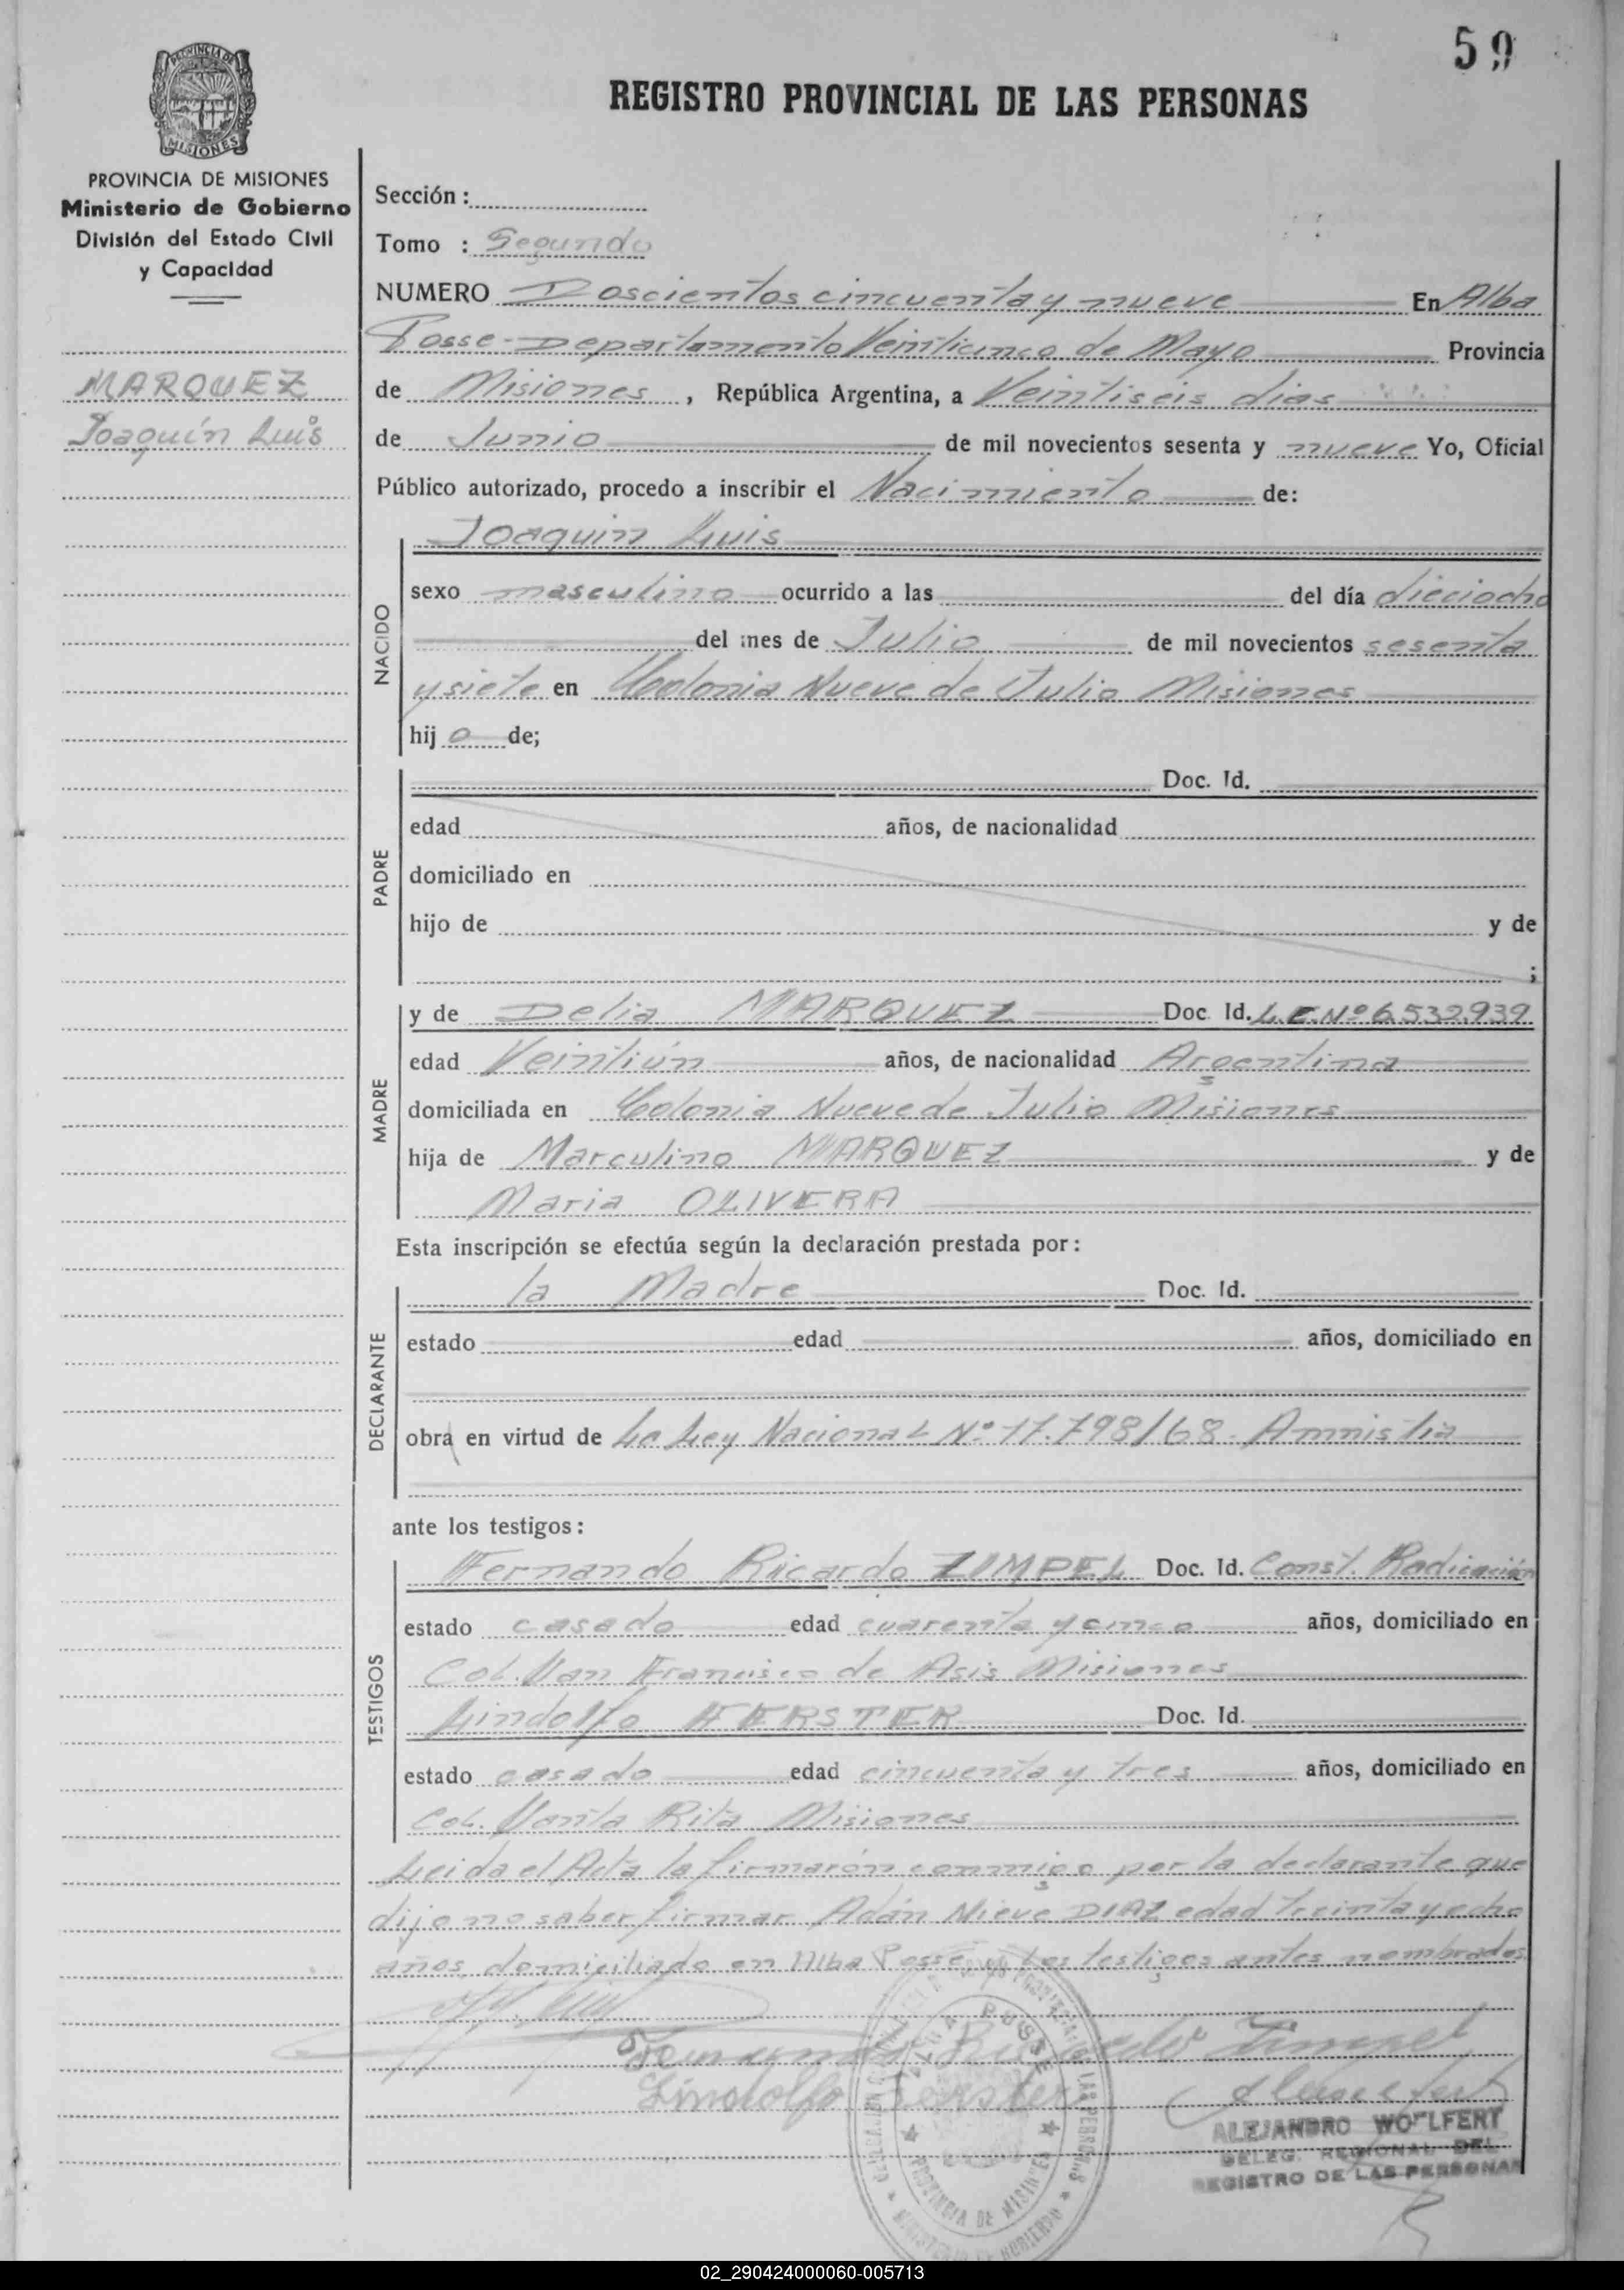 59
REGISTRO PROVINCIAL DE LAS PERSONAS
PROVINCIA DE MISIONES
Ministerio de Gobierno
División del Estado Civil
y Capacidad
MARQUEZ
Joaquín Luis
Sección :
Tomo : Segundo
NUMERO Doscientos cincuenta y nueve En Alba
Posse - Departamento Veinticinco de Mayo Provincia
de Misiones , República Argentina, a Veintiseis dias
de Junio de mil novecientos sesenta y nueve Yo, Oficial
Público autorizado, procedo a inscribir el Nacimiento de:
NACIDO
Joaquin Luis
sexo masculino ocurrido a las del día dieciocho
del mes de Julio de mil novecientos sesenta
y siete en Colonia Nueve de Julio Misiones
hij o de;
PADRE
Doc. Id.
edad años, de nacionalidad
domiciliado en
hijo de y de
;
MADRE
y de Delia MARQUEZ Doc. Id. L.E.Nº 6.532.939
edad Veintiún años, de nacionalidad Argentina
domiciliada en Colonia Nueve de Julio Misiones
hija de Marculino MARQUEZ y de
Maria OLIVERA
Esta inscripción se efectúa según la declaración prestada por:
DECLARANTE
la Madre Doc. Id.
estado edad años, domiciliado en
obra en virtud de La Ley Nacional Nº 17.798/68 - Amnistia
ante los testigos:
TESTIGOS
Fernando Ricardo ZIMPEL Doc. Id. Const. Radicación
estado casado edad cuarenta y cinco años, domiciliado en
Col. San Francisco de Asis Misiones
Lindolfo FERSTER Doc. Id.
estado casado edad cincuenta y tres años, domiciliado en
Col. Santa Rita Misiones
Leida el Acta la firmarón conmigo por la declarante que
dijo no saber firmar Adán Nieve DIAZ edad treinta y ocho
años domiciliado en Alba Posse y los testigos antes nombrados
Fernando Ricardo Zimpel
Lindolfo Ferster
ALBA POSSE
PROVINCIA DE MISIONES
MINISTERIO DE GOBIERNO
ALEJANDRO WOLFERT
DELEG. REGIONAL DEL
REGISTRO DE LAS PERSONAS
02_290424000060-005713